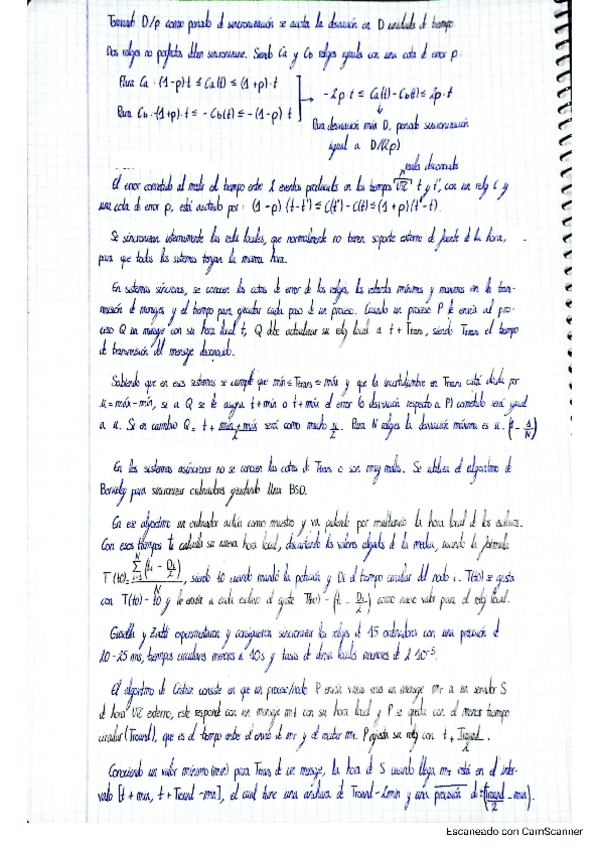 Tomando D/p como periodo de sincronización se acota la desviación en D unidades de tiempo.
Dos relojes no perfectos deben sincronizarse. Siendo Ca y Cb relojes iguales con una cota de error p:
Para Ca: (1-p)·t ≤ Ca(t) ≤ (1+p)·t
Para Cb: -(1+p)·t ≤ -Cb(t) ≤ -(1-p) t
-2p t ≤ Ca(t)-Cb(t) ≤ 2p·t
Para desviación máx D, periodo sincronización
igual a D/(2p)
escala desconocida
El error cometido al medir el tiempo entre 2 eventos producidos en los tiempos UTC t y t', con un reloj C y
una cota de error p, está acotado por: (1-p)(t'-t) ≤ C(t')-C(t) ≤ (1+p)(t'-t).
Se sincronizan internamente las redes locales, que normalmente no tienen soporte externo de fuente de la hora,
para que todos los sistemas tengan la misma hora.
En sistemas síncronos, se conocen las cotas de error de los relojes, los retardos mínimos y máximos en la trans-
misión de mensajes y el tiempo para ejecutar cada paso de un proceso. Cuando un proceso P le envía al pro-
ceso Q un mensaje con su hora local t, Q debe actualizar su reloj local a t + Ttrans, siendo Ttrans el tiempo
de transmisión del mensaje desconocido.
Sabiendo que en esos sistemas se cumple que min ≤ Ttrans ≤ máx y que la incertidumbre en Ttrans está dada por
u = máx - mín, si a Q se le asigna t + mín o t + máx el error (o desviación respecto a P) cometido será igual
a u. Si en cambio Q = t + (mín + máx)/2 será como mucho u/2. Para N relojes la desviación máxima es u·(1 - 1/N)
En los sistemas asíncronos no se conocen las cotas de Ttrans o son muy malas. Se utiliza el algoritmo de
Berkeley para sincronizar ordenadores ejecutando Unix BSD.
En ese algoritmo un ordenador actúa como maestro y va pidiendo por multicasting la hora local de los esclavos.
Con esos tiempos calcula su nueva hora local, descartando los valores alejados de la media, usando la fórmula
T(t0) = Σ(ti - Di/2)/N, siendo t0 cuando mandó la petición y Di el tiempo circular del nodo i. T(t0) se ajusta
con T(t0) - t0 y le envía a cada esclavo el ajuste T(t0) - (ti - Di/2) como nuevo valor para el reloj local.
Gusella y Zatti experimentaron y consiguieron sincronizar los relojes de 15 ordenadores con una precisión de
20-25 ms, tiempos circulares menores a 10s y tasas de deriva locales menores de 2·10⁻⁵.
El algoritmo de Cristian consiste en que un proceso/nodo P envía varias veces un mensaje mr a un servidor S
de hora UTC externo, este responde con un mensaje mt con su hora local y P se queda con el menor tiempo
circular (Tround), que es el tiempo entre el envío de mr y el recibir mt. P ajusta su reloj con t + Tround/2.
Conociendo un valor mínimo (min) para Ttrans de un mensaje, la hora de S cuando llega mt está en el inter-
valo [t + min, t + Tround - min], el cual tiene una anchura de Tround - 2min y una precisión de ±(Tround/2 - min).
Escaneado con CamScanner